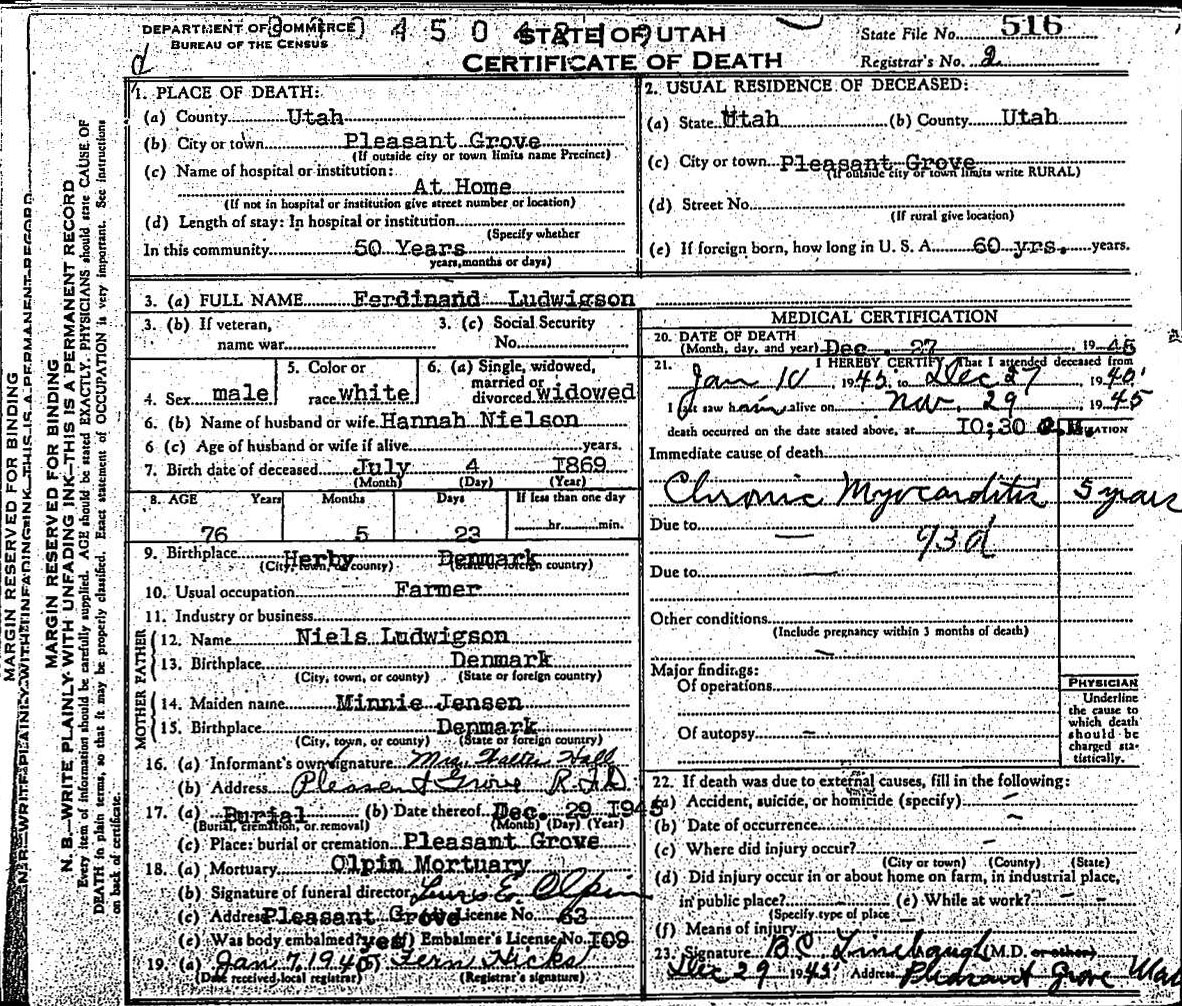 DEPARTMENT OF COMMERCE
BUREAU OF THE CENSUS
4 5 0 4 2 1 9
STATE OF UTAH
CERTIFICATE OF DEATH
State File No. 516
Registrar's No. 2
d
1. PLACE OF DEATH:
(a) County Utah
(b) City or town Pleasant Grove
(If outside city or town limits name Precinct)
(c) Name of hospital or institution:
At Home
(If not in hospital or institution give street number or location)
(d) Length of stay: In hospital or institution
(Specify whether
In this community 50 Years
years, months or days)
2. USUAL RESIDENCE OF DECEASED:
(a) State Utah (b) County Utah
(c) City or town Pleasant Grove
(If outside city or town limits write RURAL)
(d) Street No.
(If rural give location)
(e) If foreign born, how long in U. S. A. 60 yrs. years.
3. (a) FULL NAME Ferdinand Ludwigson
3. (b) If veteran,
name war
3. (c) Social Security
No.
4. Sex male
5. Color or
race white
6. (a) Single, widowed,
married or
divorced widowed
6. (b) Name of husband or wife Hannah Nielson
6 (c) Age of husband or wife if alive years.
7. Birth date of deceased July 4 I869
(Month) (Day) (Year)
8. AGE Years Months Days If less than one day
76 5 23 hr. min.
9. Birthplace Herby Denmark
(City, town, or county) (State or foreign country)
10. Usual occupation Farmer
11. Industry or business
FATHER
12. Name Niels Ludwigson
13. Birthplace Denmark
(City, town, or county) (State or foreign country)
MOTHER
14. Maiden name Minnie Jensen
15. Birthplace Denmark
(City, town, or county) (State or foreign country)
16. (a) Informant's own signature Mrs. Walter Hall
(b) Address Pleasent Grove R.F.D.
17. (a) Burial (b) Date thereof Dec. 29 I945
(Burial, cremation, or removal) (Month) (Day) (Year)
(c) Place: burial or cremation Pleasant Grove
18. (a) Mortuary Olpin Mortuary
(b) Signature of funeral director E. Olpin
(c) Address Pleasant Grove License No. 63
(e) Was body embalmed? yes (f) Embalmer's License No. I09
19. (a) Jan 7, 1946 Fern Hicks
(Date received local registrar) (Registrar's signature)
MEDICAL CERTIFICATION
20. DATE OF DEATH
(Month, day, and year) Dec. 27 19 45
21. I HEREBY CERTIFY That I attended deceased from
Jan 10, 1945, to Dec 27, 19
I last saw him alive on Nov. 29, 1945
death occurred on the date stated above, at I0;30 M.
Immediate cause of death
Chronic Myocarditis 5 years
Due to — 93d
Due to —
Other conditions
(Include pregnancy within 3 months of death)
Major findings:
Of operations
Of autopsy –
PHYSICIAN
Underline
the cause to
which death
should be
charged sta-
tistically.
22. If death was due to external causes, fill in the following:
(a) Accident, suicide, or homicide (specify) –
(b) Date of occurrence –
(c) Where did injury occur? –
(City or town) (County) (State)
(d) Did injury occur in or about home on farm, in industrial place,
in public place? (e) While at work? –
(Specify type of place
(f) Means of injury –
23. Signature B.C. Linebaugh (M.D. or other)
Dec 29 1945 Address Pleasant Grove Utah
MARGIN RESERVED FOR BINDING
MARGIN RESERVED FOR BINDING
N. B.—WRITE PLAINLY WITH UNFADING INK—THIS IS A PERMANENT RECORD
Every item of information should be carefully supplied. AGE should be stated EXACTLY. PHYSICIANS should state CAUSE OF
DEATH in plain terms, so that it may be properly classified. Exact statement of OCCUPATION is very important. See instructions
on back of certificate.